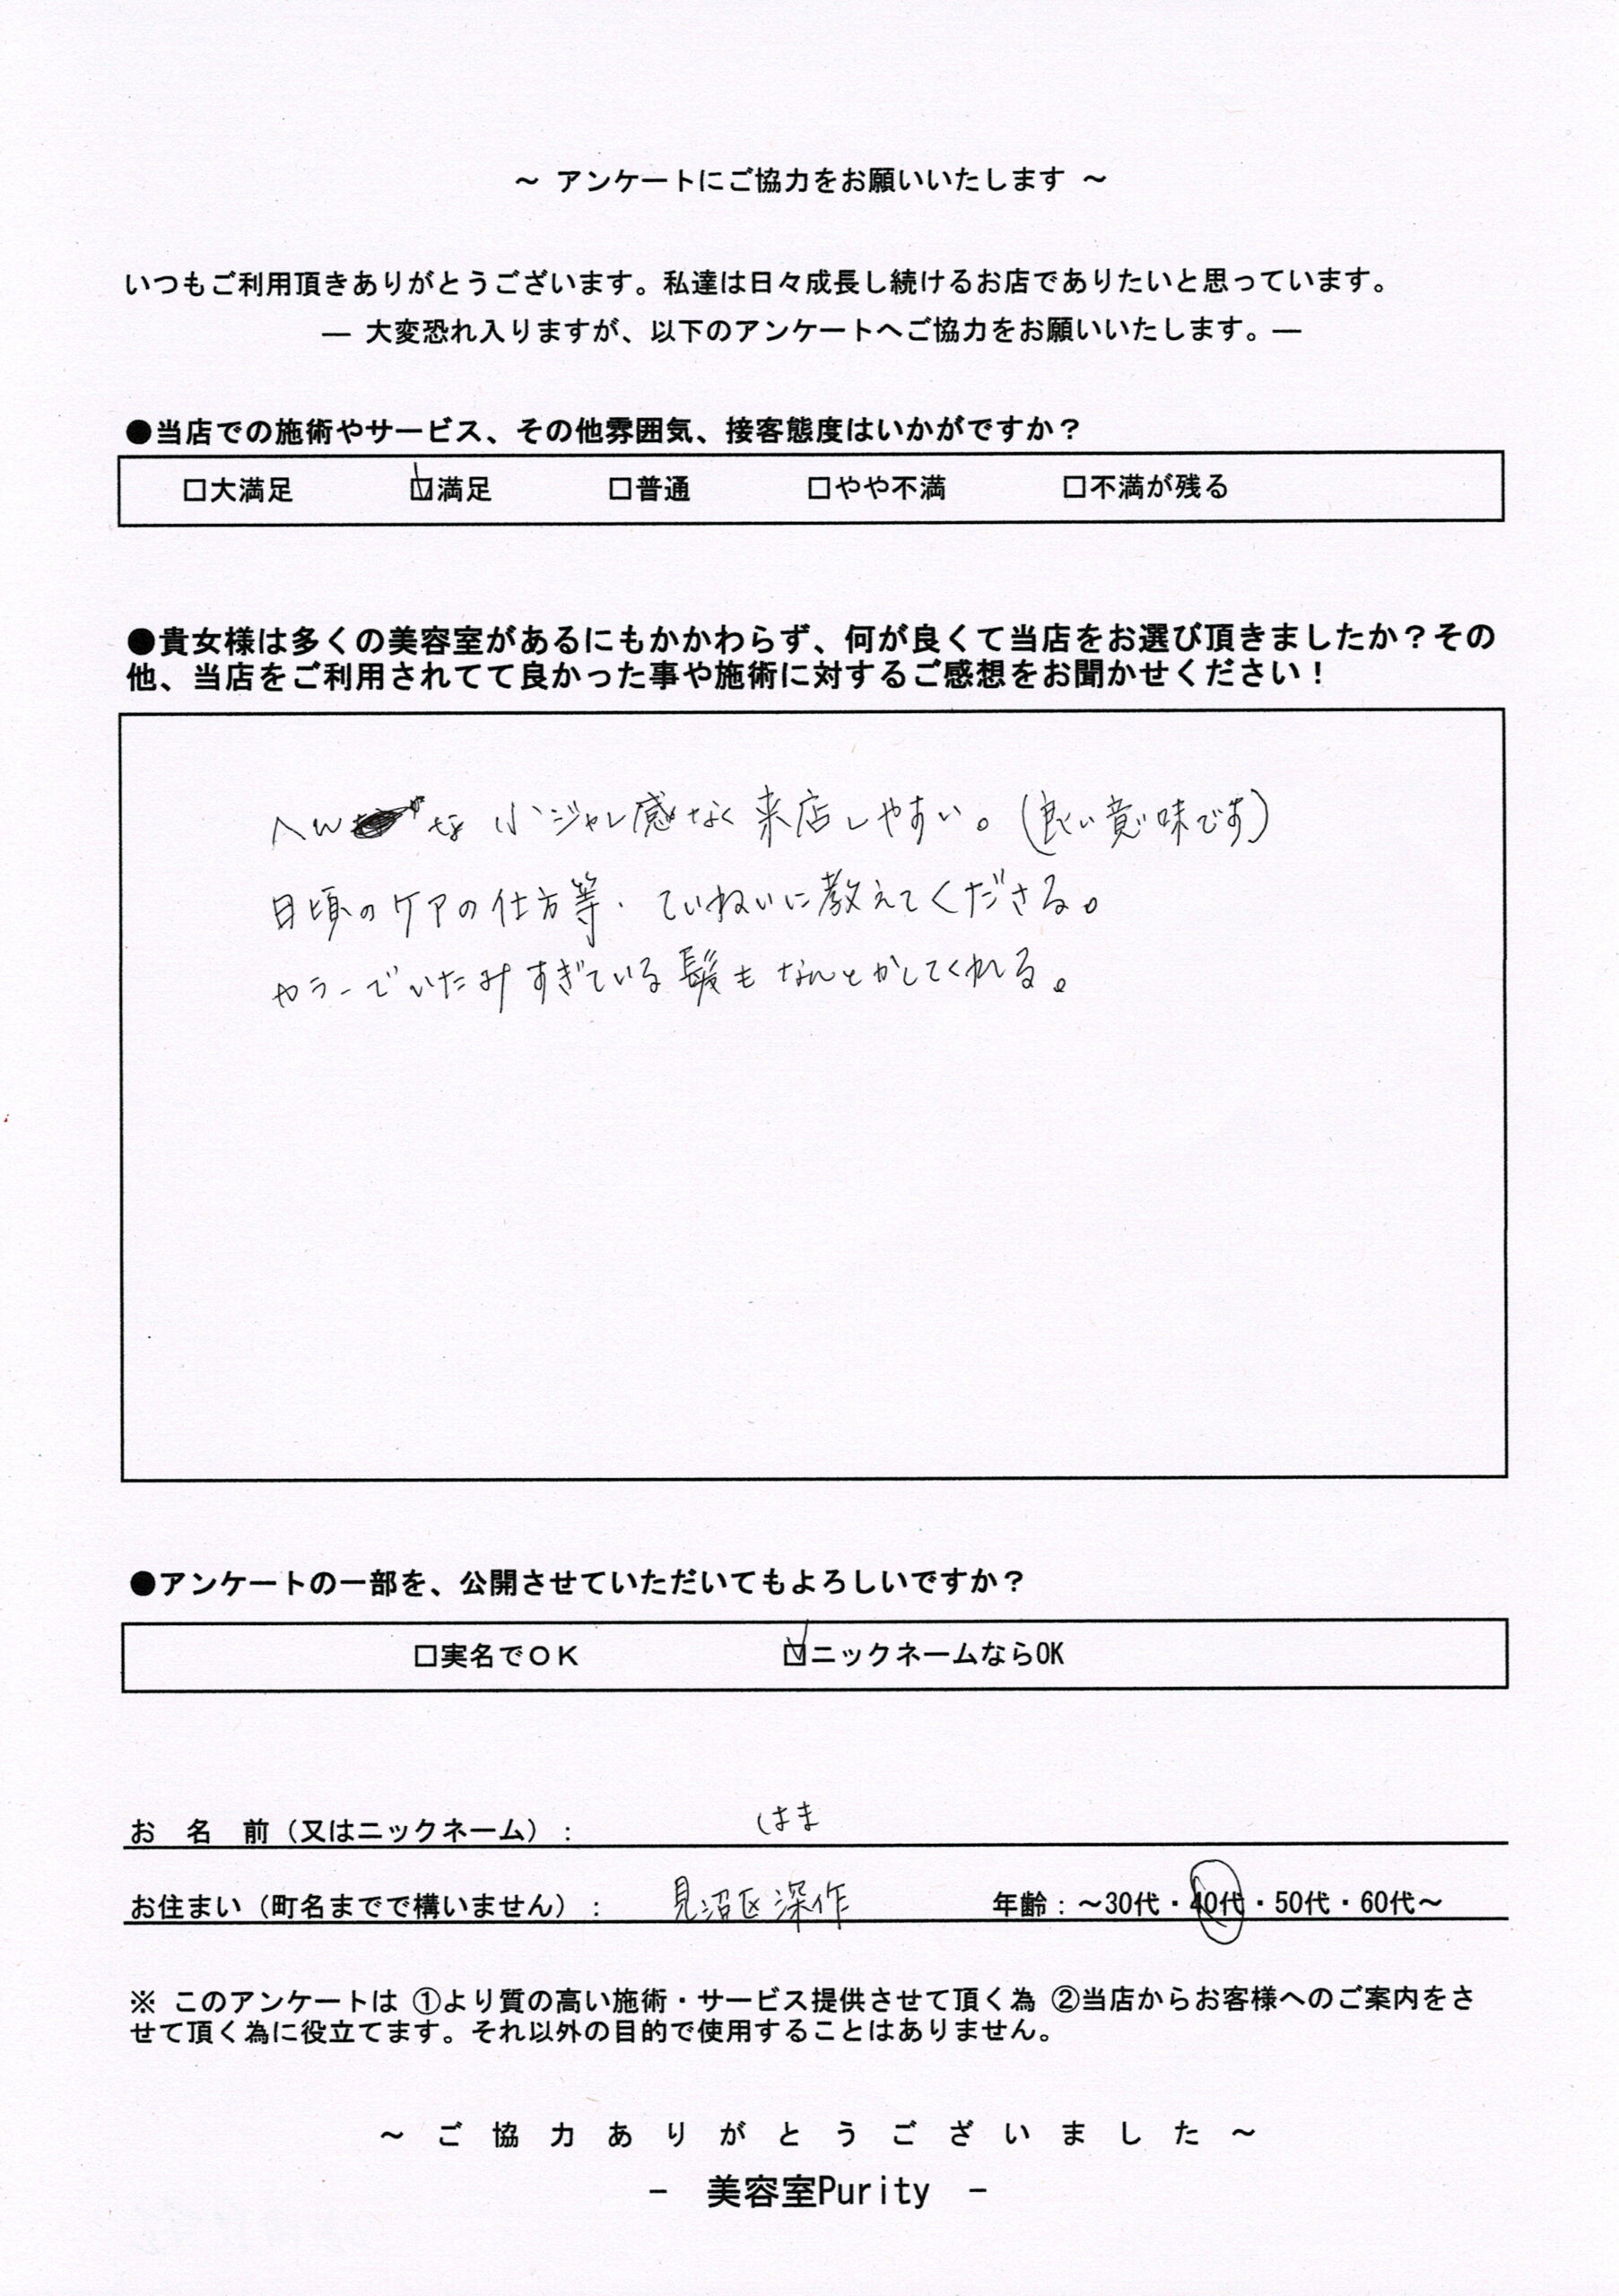 ～ アンケートにご協力をお願いいたします ～
いつもご利用頂きありがとうございます。私達は日々成長し続けるお店でありたいと思っています。
― 大変恐れ入りますが、以下のアンケートへご協力をお願いいたします。―
●当店での施術やサービス、その他雰囲気、接客態度はいかがですか？
□大満足 ☑満足 □普通 □やや不満 □不満が残る
●貴女様は多くの美容室があるにもかかわらず、何が良くて当店をお選び頂きましたか？その
他、当店をご利用されてて良かった事や施術に対するご感想をお聞かせください！
へんな小ジャレ感なく来店しやすい。(良い意味です)
日頃のケアの仕方等、ていねいに教えてくださる。
カラーでいたみすぎている髪もなんとかしてくれる。
●アンケートの一部を、公開させていただいてもよろしいですか？
□実名でＯＫ ☑ニックネームならOK
お 名 前（又はニックネーム）： はま
お住まい（町名までで構いません）： 見沼区深作 年齢：～30代・40代・50代・60代～
※ このアンケートは ①より質の高い施術・サービス提供させて頂く為 ②当店からお客様へのご案内をさ
せて頂く為に役立てます。それ以外の目的で使用することはありません。
～ ご 協 力 あ り が と う ご ざ い ま し た ～
- 美容室Purity -